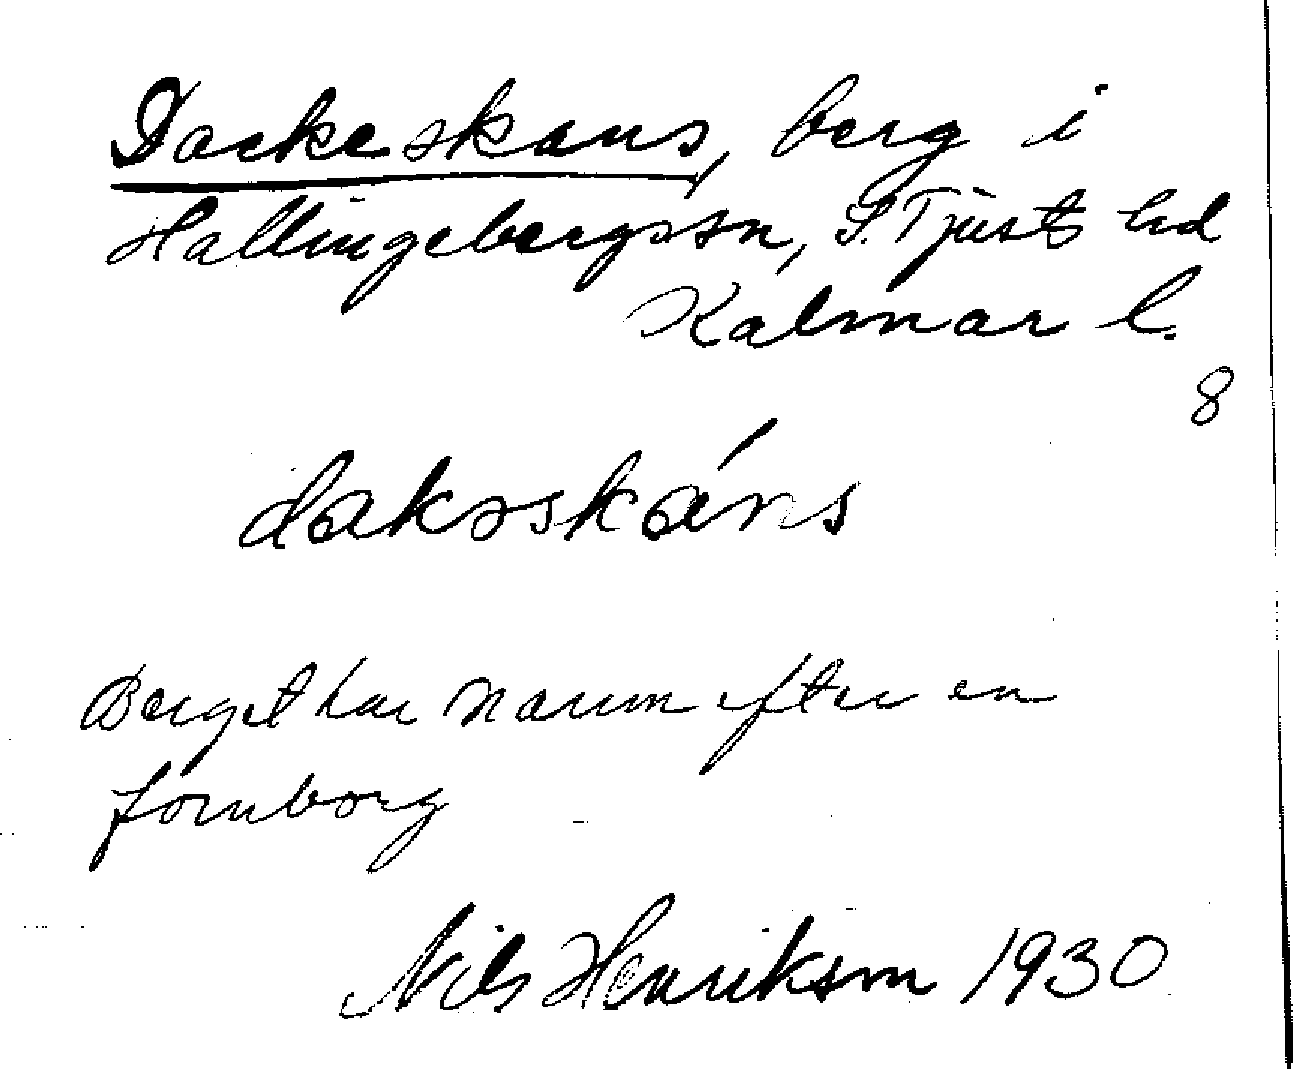 Dackeskans, berg i
Hallingebergssn, S. Tjusts hd
Kalmar l.
8
dakəskáns
Berget har namn efter en
fornborg
Nils Henrikson 1930